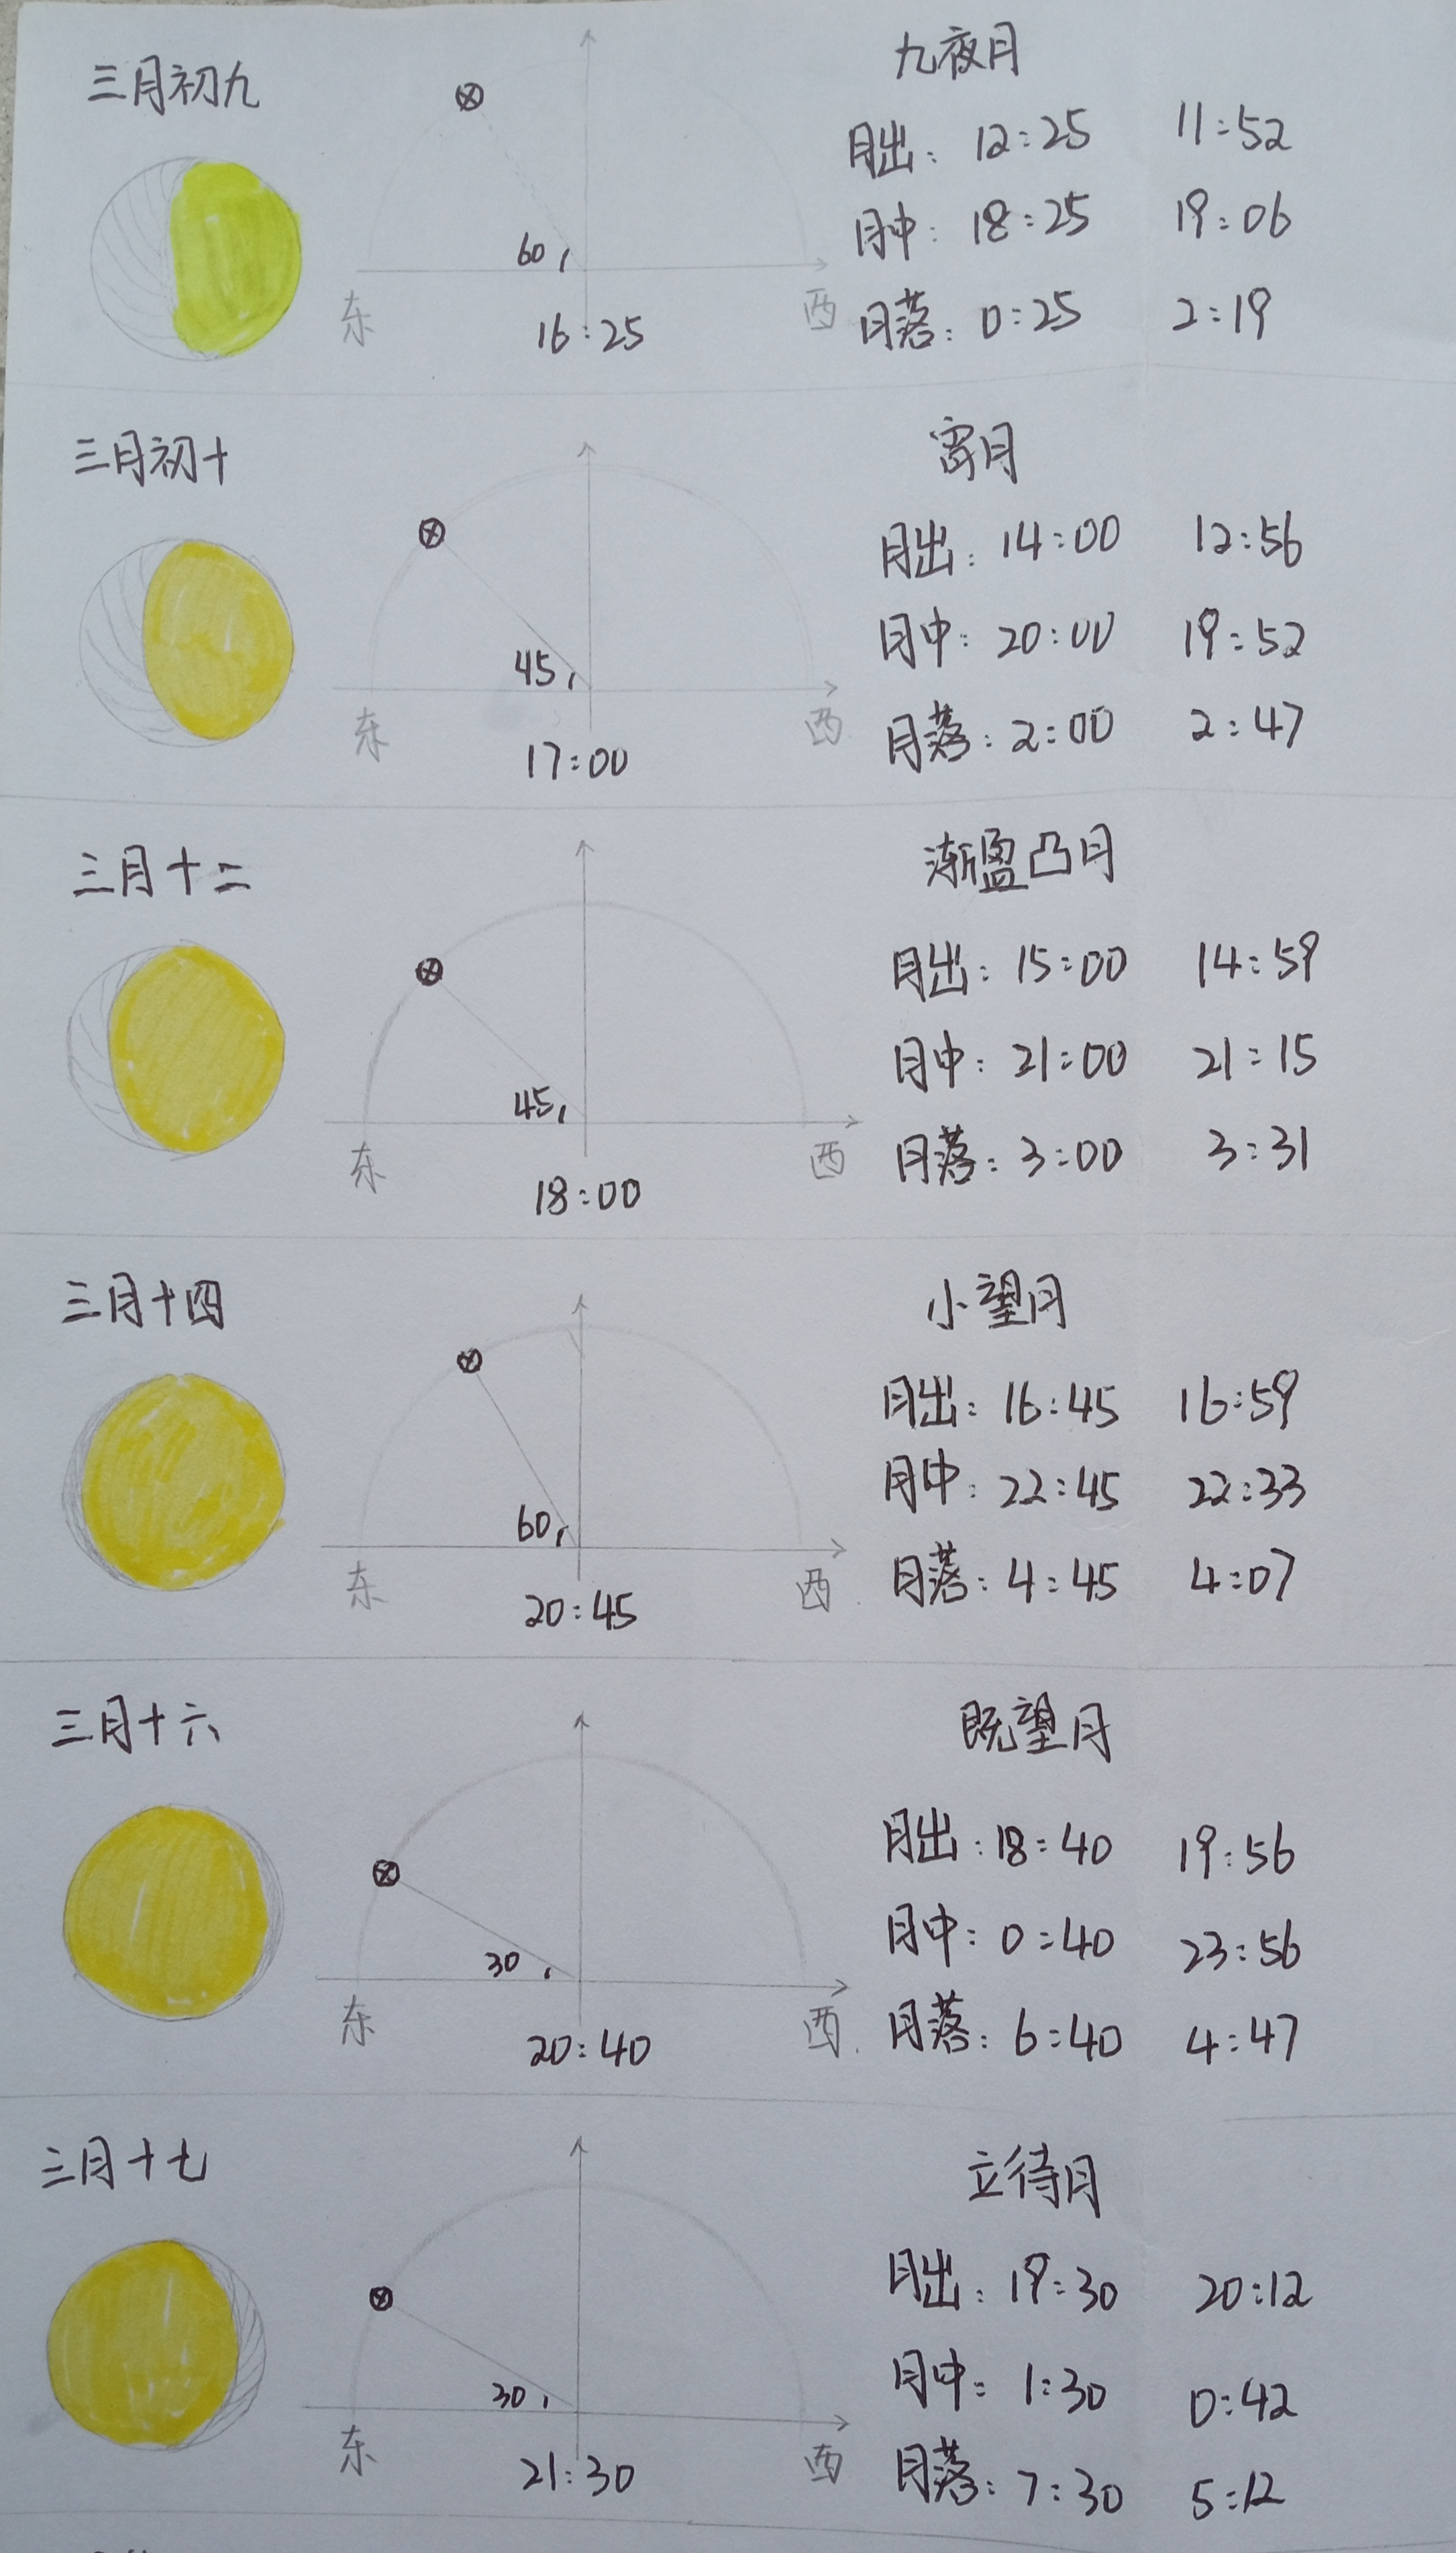 三月初九
九夜月
月出: 12:25 11:52
月中: 18:25 19:06
月落: 0:25 2:19
60
东 西
16:25
三月初十
宵月
月出: 14:00 12:56
月中: 20:00 19:52
月落: 2:00 2:47
45
东 西
17:00
三月十二
渐盈凸月
月出: 15:00 14:59
月中: 21:00 21:15
月落: 3:00 3:31
45
东 西
18:00
三月十四
小望月
月出: 16:45 16:59
月中: 22:45 22:33
月落: 4:45 4:07
60
东 西
20:45
三月十六
既望月
月出: 18:40 19:56
月中: 0:40 23:56
月落: 6:40 4:47
30
东 西
20:40
三月十七
立待月
月出: 19:30 20:12
月中: 1:30 0:42
月落: 7:30 5:12
30
东 西
21:30